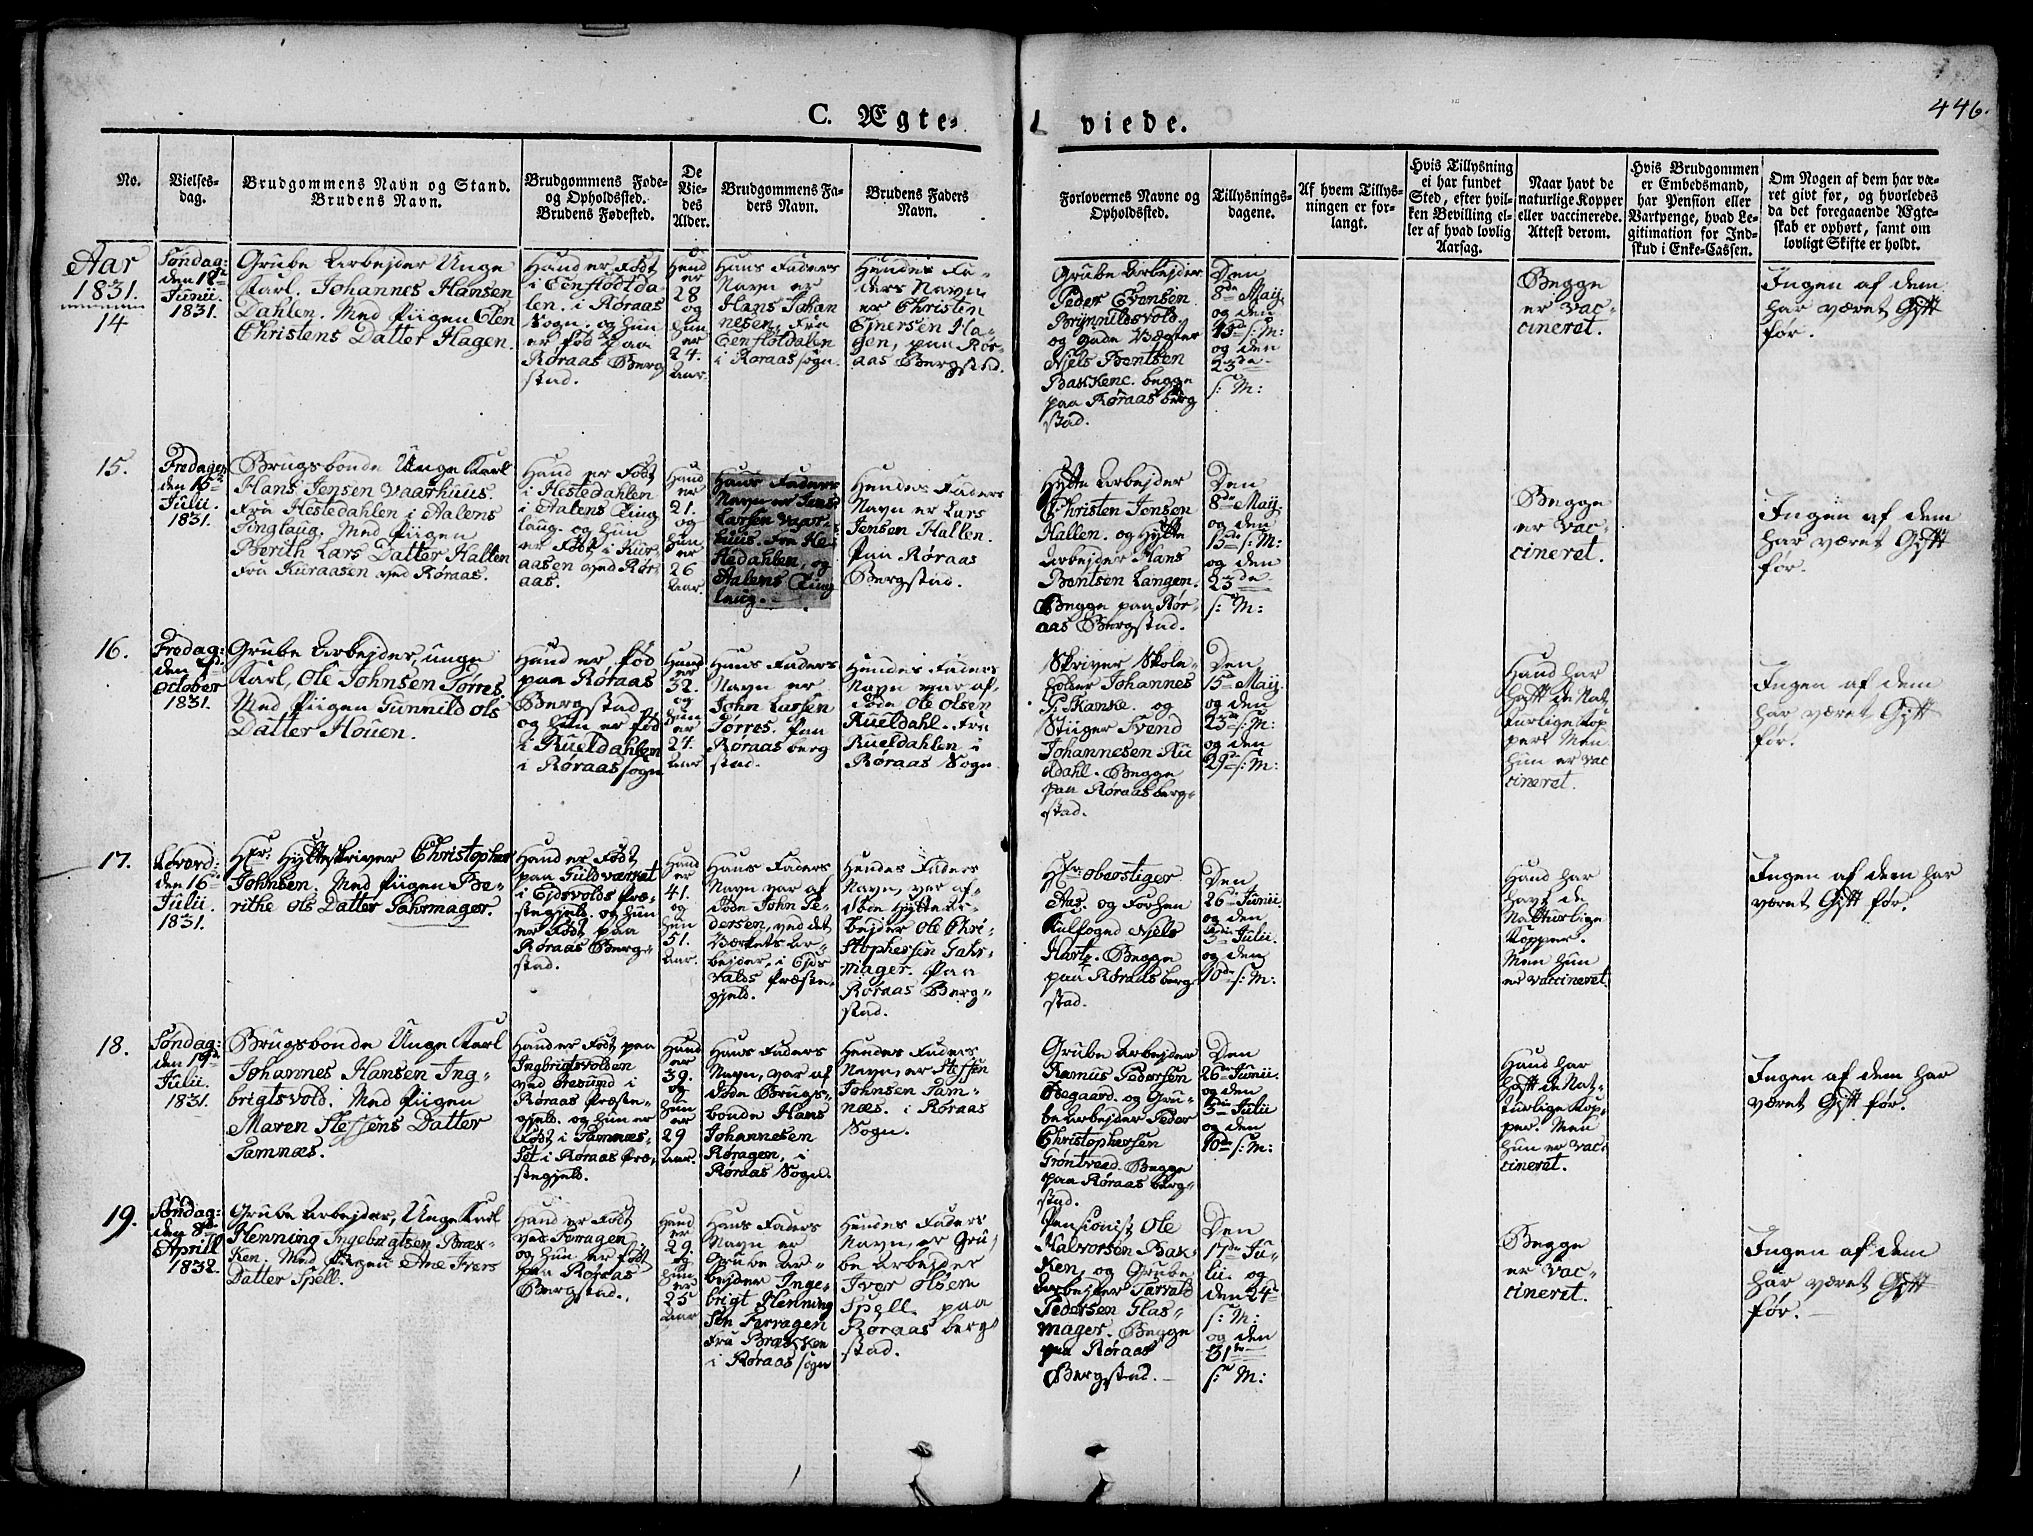 C. Ægte-
viede.
446.
No.
Vielses-
dag.
Brudgommens Navn og Stand.
Brudens Navn.
Brudgommens Føde-
og Opholdssted.
Brudens Fødested.
De
Vie-
des
Alder.
Brudgommens Fa-
ders Navn.
Brudens Faders
Navn.
Forlovernes Navne og
Opholdssted.
Tillysnings-
dagene.
Af hvem Tillys-
ningen er for-
langt.
Hvis Tillysning
ei har fundet
Sted, efter hvil-
ken Bevilling el-
ler af hvad lovlig
Aarsag.
Naar havt de
naturlige Kopper
eller vaccinerede.
Attest derom.
Hvis Brudgommen
er Embedsmand,
har Pension eller
Vartpenge, hvad Le-
gitimation for Ind-
skud i Enke-Cassen.
Om Nogen af dem har væ-
ret givt før, og hvorledes
da det foregaaende Ægte-
skab er ophørt, samt om
lovligt Skifte er holdt.
Aar
1831.
14
Søndag:
den
Junii.
1831.
Grube Arbejder Unge
Karl. Johannes Hansen
Dahlen. Med Piigen Elen
Christens Datter Hagen.
Hand er Født
i Feenflodda-
len. i Røraas
Sogn. og hun
er fød paa
Røraas Berg
stad.
Hand
er
28
og
hun
er
24.
Aar.
Hans Faders
Navn er
Hans Johan
nesen. Fra
i Røraas sogn.
Hendes Fa-
ders Navn
er Christen
Ejnersen Ha-
gen, paa Rør-
aas Bergstad.
Grube Arbejder
Peder Evensen
Brynnildsvold.
og Gade Vægter
Niels Bentsen
Bakkene. begge
paa Røraas berg
stad.
Den
8de May.
og den
og den
23de
s: M:
Begge
er vac-
cineret.
Ingen af dem
har været Gift
før.
15.
Fredagen
den 15de
Julii.
1831.
Brugsbonde Unge Karl
Hans Jensen Vaarhuus.
Fra Hestedahlen i Aalens
Tinglaug. Med Piigen
Berith Lars Datter Hallen
Fra Kuraasen ved Røraas.
Hand er Født
i Hestedahlen
i Aalens Ting
laug. og hun
er Født i Kur-
aasen ved Rør-
aas.
Hand
er
21.
og
hun
er
26
Aar.
Hans Faders
Navn er Jens
Larsen Vaar-
huus. Fra He-
stedahlen, og
Aalens Ting
laug.
Hendes Faders
Navn er Lars
Jensen Hallen.
Paa Røraas
Bergstad.
Hytte Arbejder
Christen Jensen
Hallen. og Hytte
Arbejder Hans
Bentsen Langen.
Begge paa Rør-
aas Bergstad.
Den
8de May.
og den
15de s: M:
og den
23de
s: M:
Begge
er vac-
cineret.
Ingen af dem
har været Gift
før.
16.
Fredag:
den
October
1831.
Grube Arbejder, unge
Karl, Ole Johnsen Tørres.
Med Piigen Gunnild Ols
Datter Houen.
Hand er fød
paa Røraas
Bergstad
og hun er fød
i Rueldahlen
i Røraas sogn
Hand
er
32.
og
hun
er
24.
Aar
Hans Faders
Navn er
John Larsen
Tørres. Paa
Røraas berg
stad.
Hendes Faders
Navn var af-
døde Ole Olsen
Rueldahl. Fra
Rueldahlen i
Røraas Sogn.
Skriver Skole-
holder Johannes
G: Skanke. og
Stiiger Svend
Johannesen Ru
eldahl. Begge
paa Røraas berg-
stad.
Den
15de May.
og den
23de s: M:
og den
29de s: M:
Hand har
haft de Nat-
turlige Kop
per. Men
hun er vac
cineret.
Ingen af dem
har været Gift
før.
17.
Løverd:
den 16de
Julii.
1831.
Hr: Hytteskriver Christopher
Johnsen. Med Piigen Be-
rithe Ols Datter Gahrmager.
Hand er Født
paa Guldværket
i Eidsvolds Præ-
stegjeld. og hun
er Født paa
Røraas Berg-
stad.
Hand
er
41.
og
hun
51.
Aar.
Hans Faders
Navn var af
døde John Pe-
dersen, ved det
Værkets Ar-
bejder, i Eids
valds Præste-
gjeld.
Hendes Faders
Navn, var af-
døde Hytte Ar-
bejder Ole Chri-
stophersen Gahr-
mager. Paa
Røraas Berg-
stad.
Hr: Oberstiger
Aas. og Forhen
Kulfoged Niels
Hart. Begge
paa Røraas berg
stad.
Den
26de Junii.
og den
3die Julii.
og den
10de s: M:
Hand har
havt de
Natturlige
Kopper.
Men hun
er vaccineret.
Ingen af dem har
været Gift før.
18.
Søndag:
den
Julii.
1831.
Brugsbonde Unge Karl
Johannes Hansen Ing-
brigtsvold. Med Piigen
Maren Steffens Datter
Tamnæs.
Hand er Født paa
Ingbrigtsvolden
ved Øresund i
Røraas Præste-
gjeld. og hun er
Født i Tamnæs-
set i Røraas Præ-
stegjeld.
Hand
er
39.
og
hun
er
29
Aar.
Hans Faders
Navn, var af
døde Brugs-
bonde Hans
Johannesen
Røragen, i
Røraas Sogn.
Hendes Faders
Navn, er Steffen
Johnsen Tam-
næs. i Røraas
Sogn.
Grube Arbejder
Rasmus Pedersen
Aasgaard. og Gru-
be Arbejder Peder
Christophersen
Grøntvead. Begge
paa Røraas berg-
stad.
Den
26de Junii.
og den
3die Julii
og den
10de s: M:
Hand har
haft de Nat-
turlige Kop-
per. Men
hun er vac-
cineret.
Ingen af dem har
været Gift før.
19.
Søndag:
den 8de
Aprill
1832.
Grube Arbejder, Unge Karl
Henning Ingebrigtsen Bræk-
ken. Med Piigen Ane Ivers
Datter Spell.
Hand er Født
ved Feragen.
og hun er født
paa Røraas
Bergstad.
Hand
er
29.
og
hun
er
25
Aar
Hans Faders
Navn er
Grube Ar-
bejder Inge-
brigt Henning
sen Ferragen
Fra Brækken
i Røraas sogn
Hendes Faders
Navn, er Gru-
be Arbejder
Iver Olsen
Spell. paa
Røraas berg
stad.
Pensionist Ole
Halvorsen Bak-
ken, og Grube
Arbejder Tarrald
Pedersen Glas-
mager. Begge
paa Røraas
Bergstad.
Den
17de Ju-
lii. og
den 24de
s: M:
og den
31te
s: M:
Begge
er vac-
cineret.
Ingen af dem
har været Gift
før.